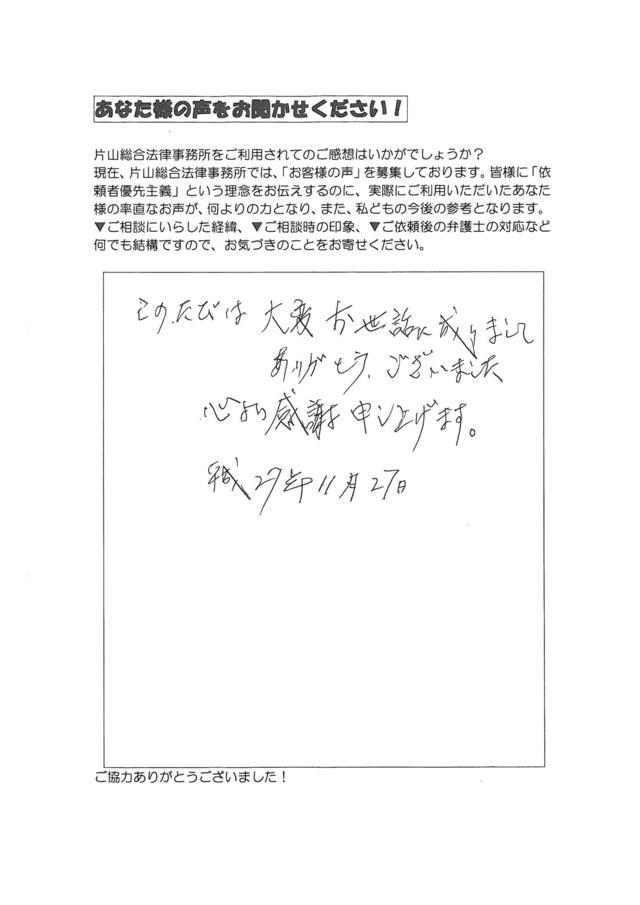 あなた様の声をお聞かせください！
片山総合法律事務所をご利用されてのご感想はいかがでしょうか？
現在、片山総合法律事務所では、「お客様の声」を募集しております。皆様に「依
頼者優先主義」という理念をお伝えするのに、実際にご利用いただいたあなた
様の率直なお声が、何よりの力となり、また、私どもの今後の参考となります。
▼ご相談にいらした経緯、▼ご相談時の印象、▼ご依頼後の弁護士の対応など
何でも結構ですので、お気づきのことをお寄せください。
このたびは 大変 お世話に成りまして
ありがとう、ございました
心より感謝申し上げます。
平成27年11月27日
ご協力ありがとうございました！